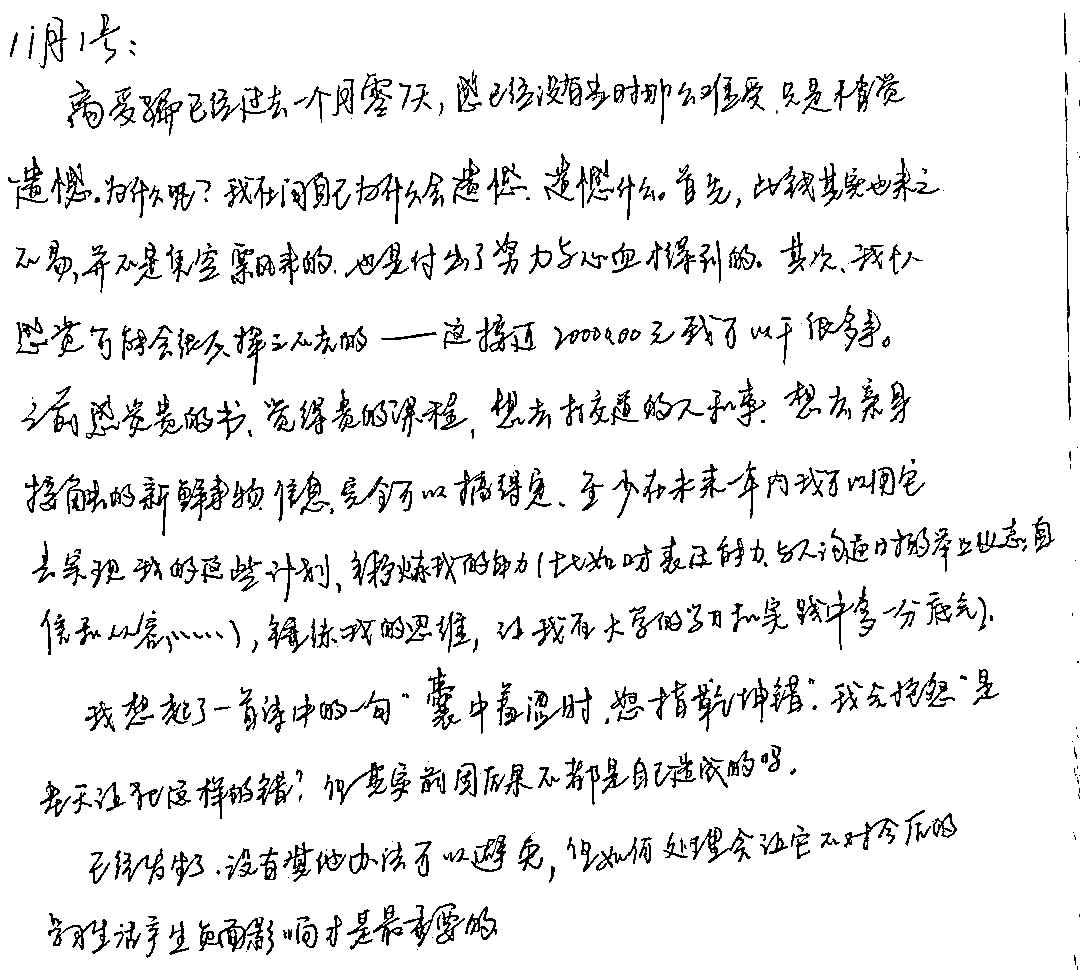 11月1号:
离受骗已经过去一个月零7天,虽已经没有当时那么难受,只是有觉
遗憾。为什么呢?我在问自己为什么会遗憾、遗憾什么。首先,此钱其实也来之
不易,并不是凭空飘来的,也是付出了努力与心血才得到的。其次、我个人
感觉可能会挥之不去的——这接近2000.00元我可以干很多事。
之前感觉贵的书、觉得贵的课程,想去打交道的人和事、想去亲身
接触的新鲜事物信息,完全可以搞得定、至少在未来一年内我可以用它
去实现我的这些计划,锻炼我的能力(比如对表达能力、与人沟通时的举止仪态,自
信和从容,……),锻练我的思维,让我在大学的学习和实践中多一分底气)。
我想起了一首诗中的一句“囊中羞涩时,怒指乾坤错”。我会抱怨“是
老天让我犯这样的错?但其实前因后果不都是自己造成的吗。
已经发生了.没有其他办法可以避免,但如何处理会让它不对今后的
学习生活产生负面影响才是最重要的